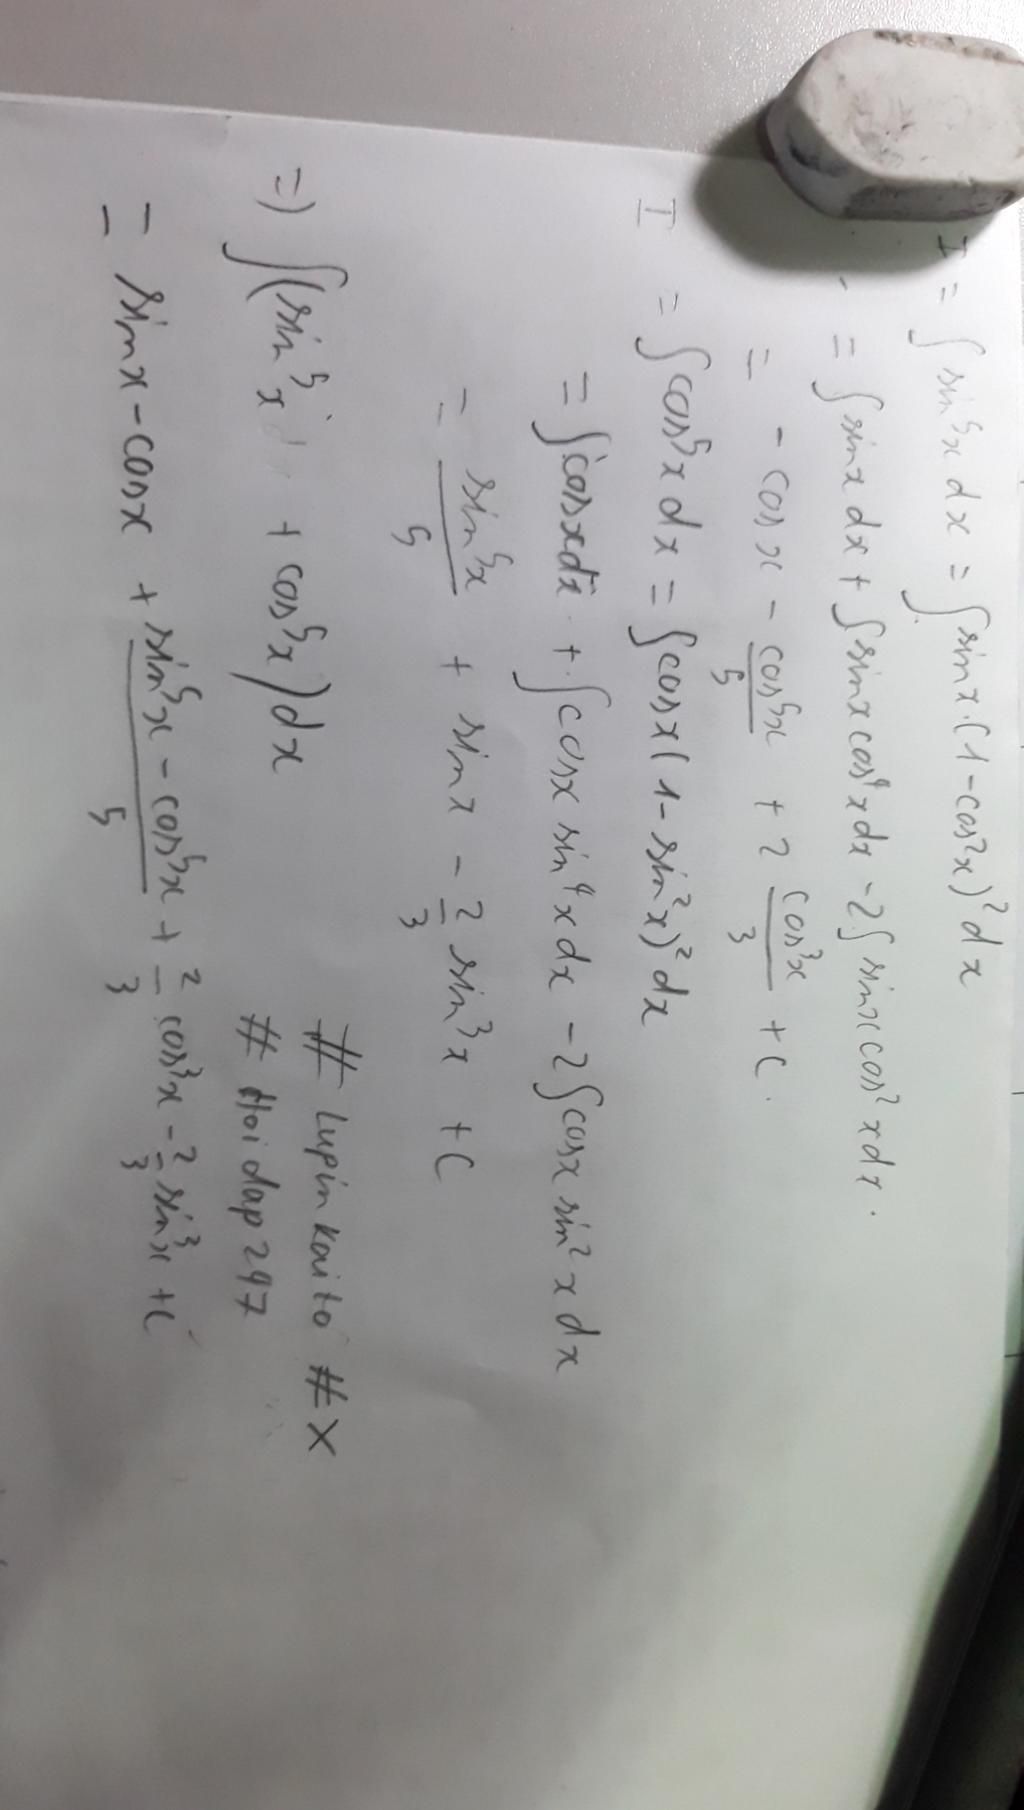 I = ∫ sin⁵x dx = ∫ sinx.(1-cos²x)² dx
= ∫ sinx dx + ∫ sinx cos⁴x dx - 2∫ sinx cos²x dx.
= - cosx - cos⁵x/5 + 2 cos³x/3 + C.
I = ∫ cos⁵x dx = ∫ cosx (1-sin²x)² dx
= ∫ cosx dx + ∫ cosx sin⁴x dx - 2∫ cosx sin²x dx
= sin⁵x/5 + sinx - 2/3 sin³x + C
=) ∫(sin⁵x + cos⁵x) dx
= sinx - cosx + (sin⁵x - cos⁵x)/5 + 2/3 cos³x - 2/3 sin³x + C
# Lupin kaito # X
# Hoi dap 247